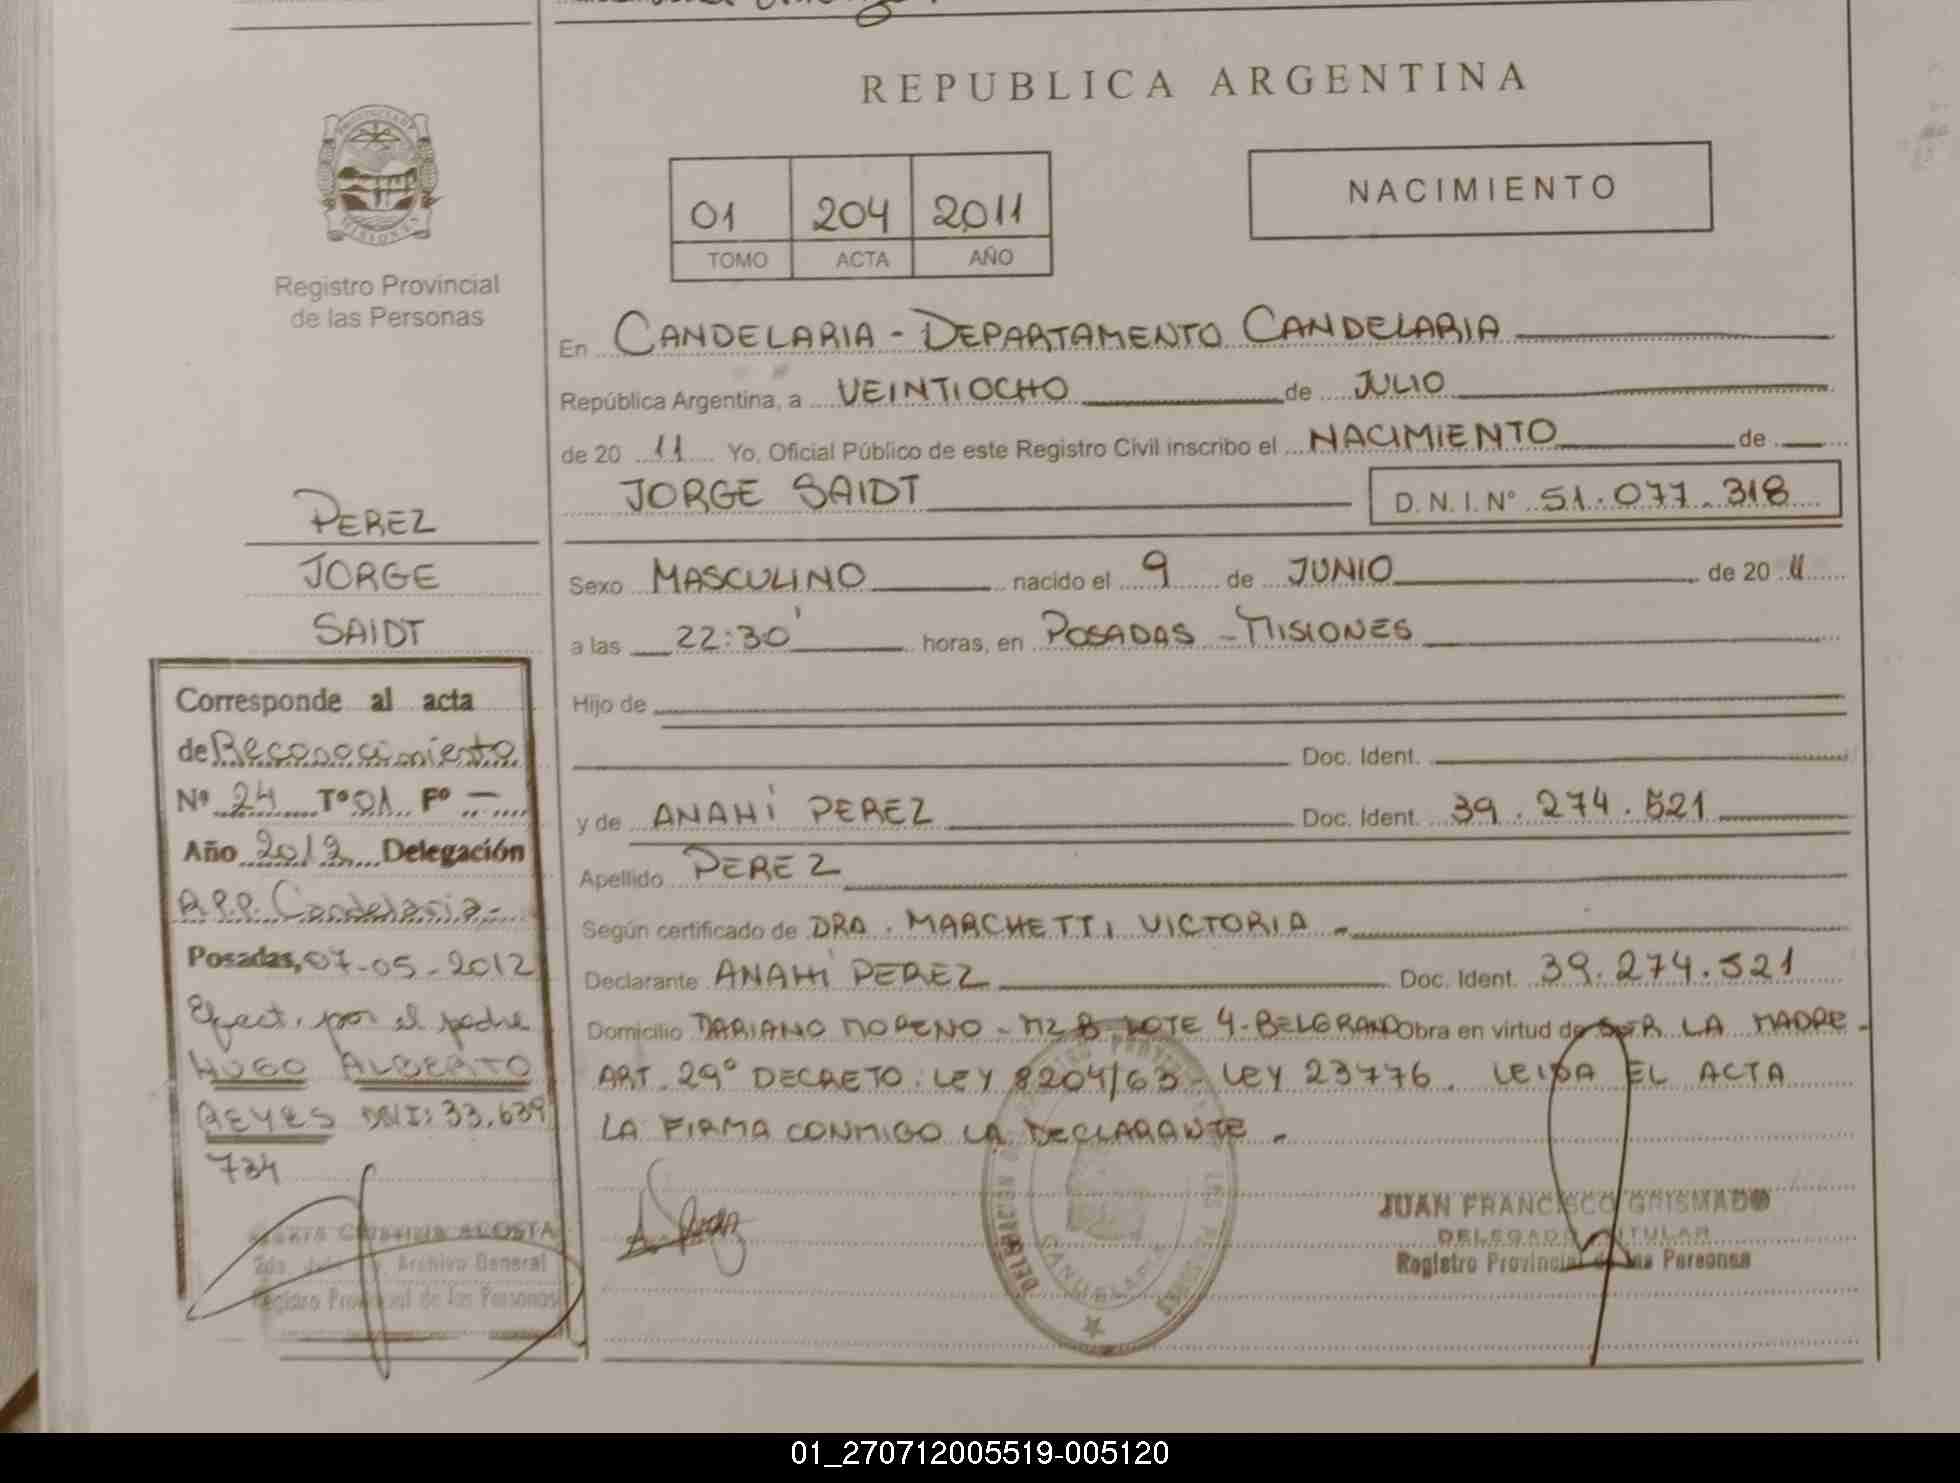 REPUBLICA ARGENTINA
NACIMIENTO
01 204 2011
TOMO ACTA AÑO
Registro Provincial
de las Personas
En CANDELARIA - DEPARTAMENTO CANDELARIA
República Argentina, a VEINTIOCHO de JULIO
de 20 11 Yo, Oficial Público de este Registro Civil inscribo el NACIMIENTO de
JORGE SAIDT D.N.I. Nº 51.077.318
Sexo MASCULINO nacido el 9 de JUNIO de 20 11
a las 22:30' horas, en POSADAS - MISIONES
Hijo de
Doc. Ident.
y de ANAHÍ PEREZ Doc. Ident. 39.274.521
Apellido PEREZ
Según certificado de DRA. MARCHETTI, VICTORIA -
Declarante ANAHÍ PEREZ Doc. Ident. 39.274.521
Domicilio MARIANO MORENO - MZ B LOTE 4 - BELGRANO Obra en virtud de SER LA MADRE -
ART. 29º DECRETO. LEY 8204/63 - LEY 23776. LEIDA EL ACTA
LA FIRMA CONMIGO LA DECLARANTE. -
JUAN FRANCISCO GRISMADO
DELEGADO TITULAR
Registro Provincial de las Personas
DELEGACION
CANDELARIA
PEREZ
JORGE
SAIDT
Corresponde al acta
de Reconocimiento
Nº 24 Tº 01 Fº -
Año 2012 Delegación
R.P.P. Candelaria -
Posadas, 07-05-2012
Efect. por el padre
HUGO ALBERTO
REYES DNI: 33.639
734
ACOSTA
Archivo General
Registro Provincial de las Personas
01_270712005519-005120